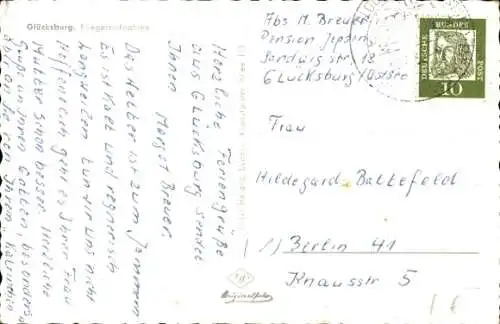 Glücksburg. Fliegeraufnahme
Herzliche Feriengrüße
aus Glücksburg sendet
Ihnen
Margot Breuer.
Das Wetter ist zum Jammern
Es ist kalt und regnerisch
Langweilen tun wir uns nicht
Hoffentlich geht es Ihrer Frau
Mutter schon besser. Herzliche
Grüße an Ihren Gatten, besonders
Abs M. Breuer
Pension Jepsen
Sandwigstr. 12
Glücksburg/Ostsee
DEUTSCHE
BUNDES
POST
10
Frau
Hildegard Battefeld
1) Berlin 41
Knausstr 5
Agfa
Originalfoto